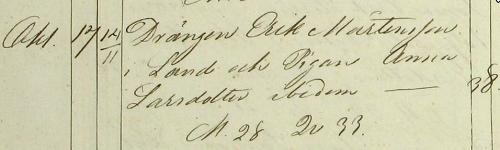 Okt. 17 14/11 Drängen Erik Mårtensson
i Land och Pigan Anna
Larsdotter ibidem — 38.
M. 28 Qv 33.